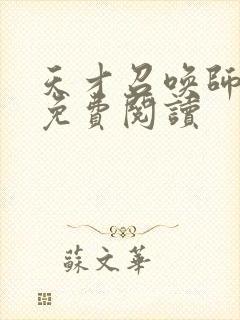 天才召喚師
免費閱讀
蘇文華